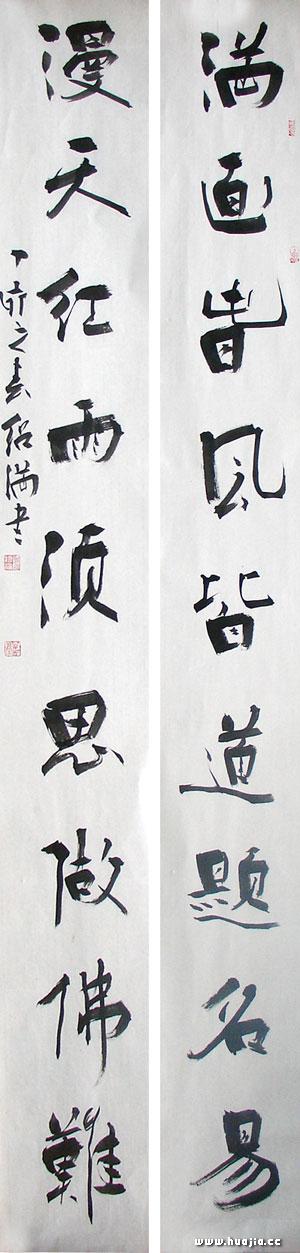 满面春风皆道题名易
漫天红雨须思做佛難
丁卯之春绍满书
www.huajia.cc